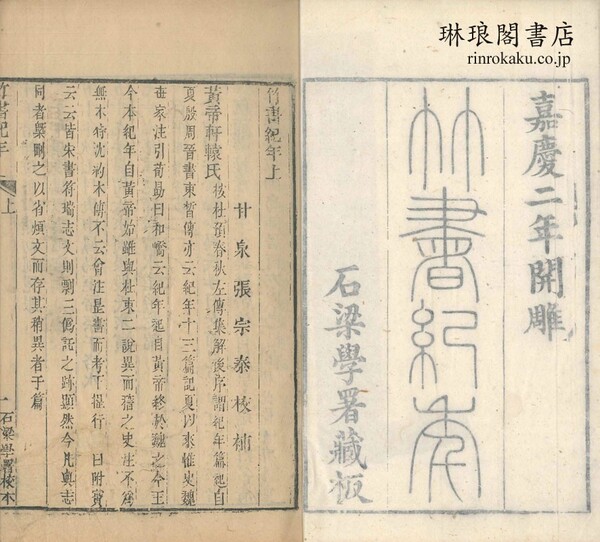 琳琅閣書店
rinrokaku.co.jp
嘉慶二年開雕
竹書紀年
石梁學署藏板
竹書紀年上
甘泉張宗泰校補
黃帝軒轅氏 按杜預春秋左傳集解後序謂紀年篇起自
夏殷周晉書束晳傳亦云紀年十三篇記夏以來惟史魏
世家注引荀勗曰和嶠云紀年起自黃帝終於魏之今王
今本紀年自黃帝始雖與杜束二說異而稽之史注不爲
無本特沈約本傳不云會注是書而考
云云皆宋書符瑞志文則剽之跡顯然今凡與志
同者槩刪之以省煩文而存其稍異者于篇
竹書紀年 上
一 石梁學署校本